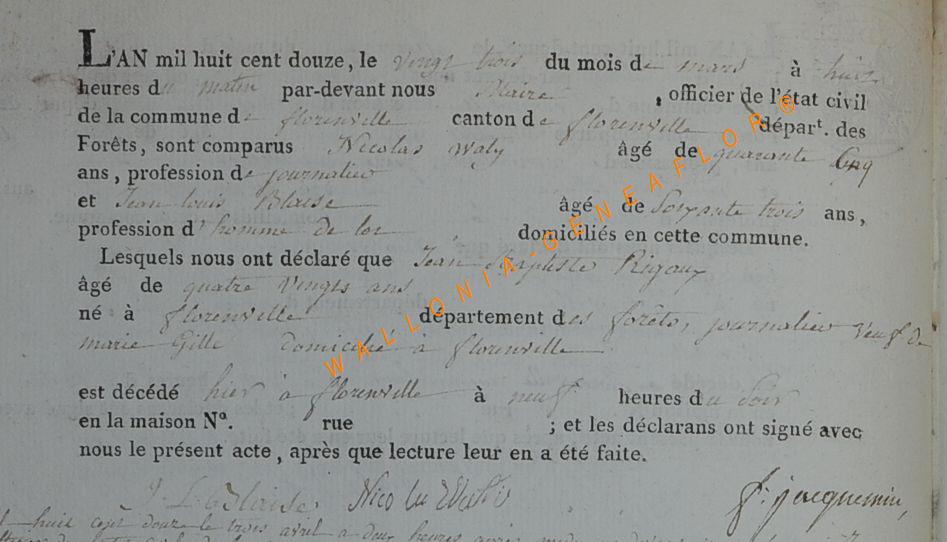 L'AN mil huit cent douze, le vingt trois du mois de mars à huit
heures du matin par-devant nous Maire, officier de l'état civil
de la commune de florenville canton de florenville départ. des
Forêts, sont comparus Nicolas Waly âgé de quarante Cinq
ans, profession de journalier
et Jean louis Blaise âgé de Soixante trois ans,
profession d'homme de loi domiciliés en cette commune.
Lesquels nous ont déclaré que Jean Baptiste Rigaux
âgé de quatre vingts ans
né à florenville département des forêts, journalier Veuf de
marie Gille domicilié à florenville
est décédé hier à florenville à neuf heures du Soir
en la maison Nº. rue ; et les déclarans ont signé avec
nous le présent acte, après que lecture leur en a été faite.
J. L. Blaise Nicolas f. jacquemin
huit cent douze le trois avril a deux heures après
WALLONIA-GENEAFLOR®